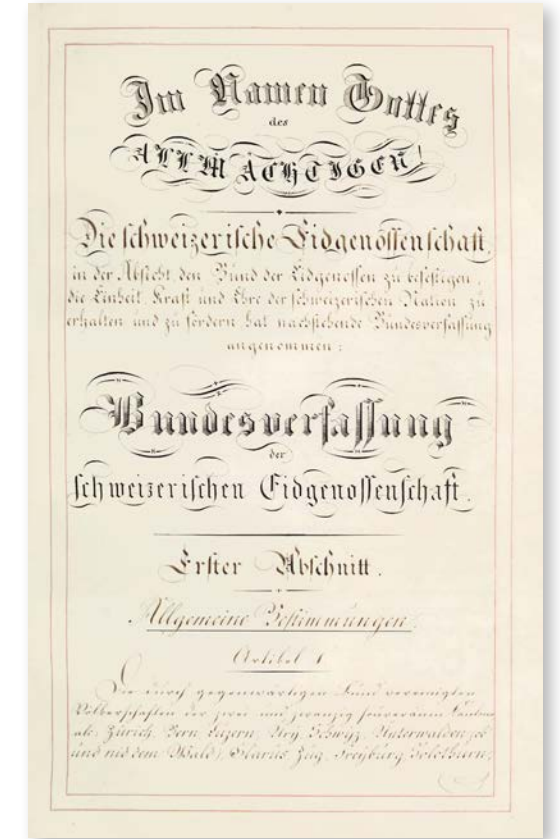 Im Namen Gottes
des
ALLMÄCHTIGEN!
Die schweizerische Eidgenossenschaft,
in der Absicht, den Bund der Eidgenossen zu befestigen,
die Einheit, Kraft und Ehre der schweizerischen Nation zu
erhalten und zu fördern, hat nachstehende Bundesverfassung
angenommen:
Bundesverfassung
der
schweizerischen Eidgenossenschaft.
Erster Abschnitt.
Allgemeine Bestimmungen.
Artikel 1
Die durch gegenwärtigen Bund vereinigten
Völkerschaften der zwei und zwanzig souveränen Kantone
als: Zürich, Bern, Luzern, Ury, Schwyz, Unterwalden (ob
und nid dem Wald), Glarus, Zug, Freyburg, Solothurn,